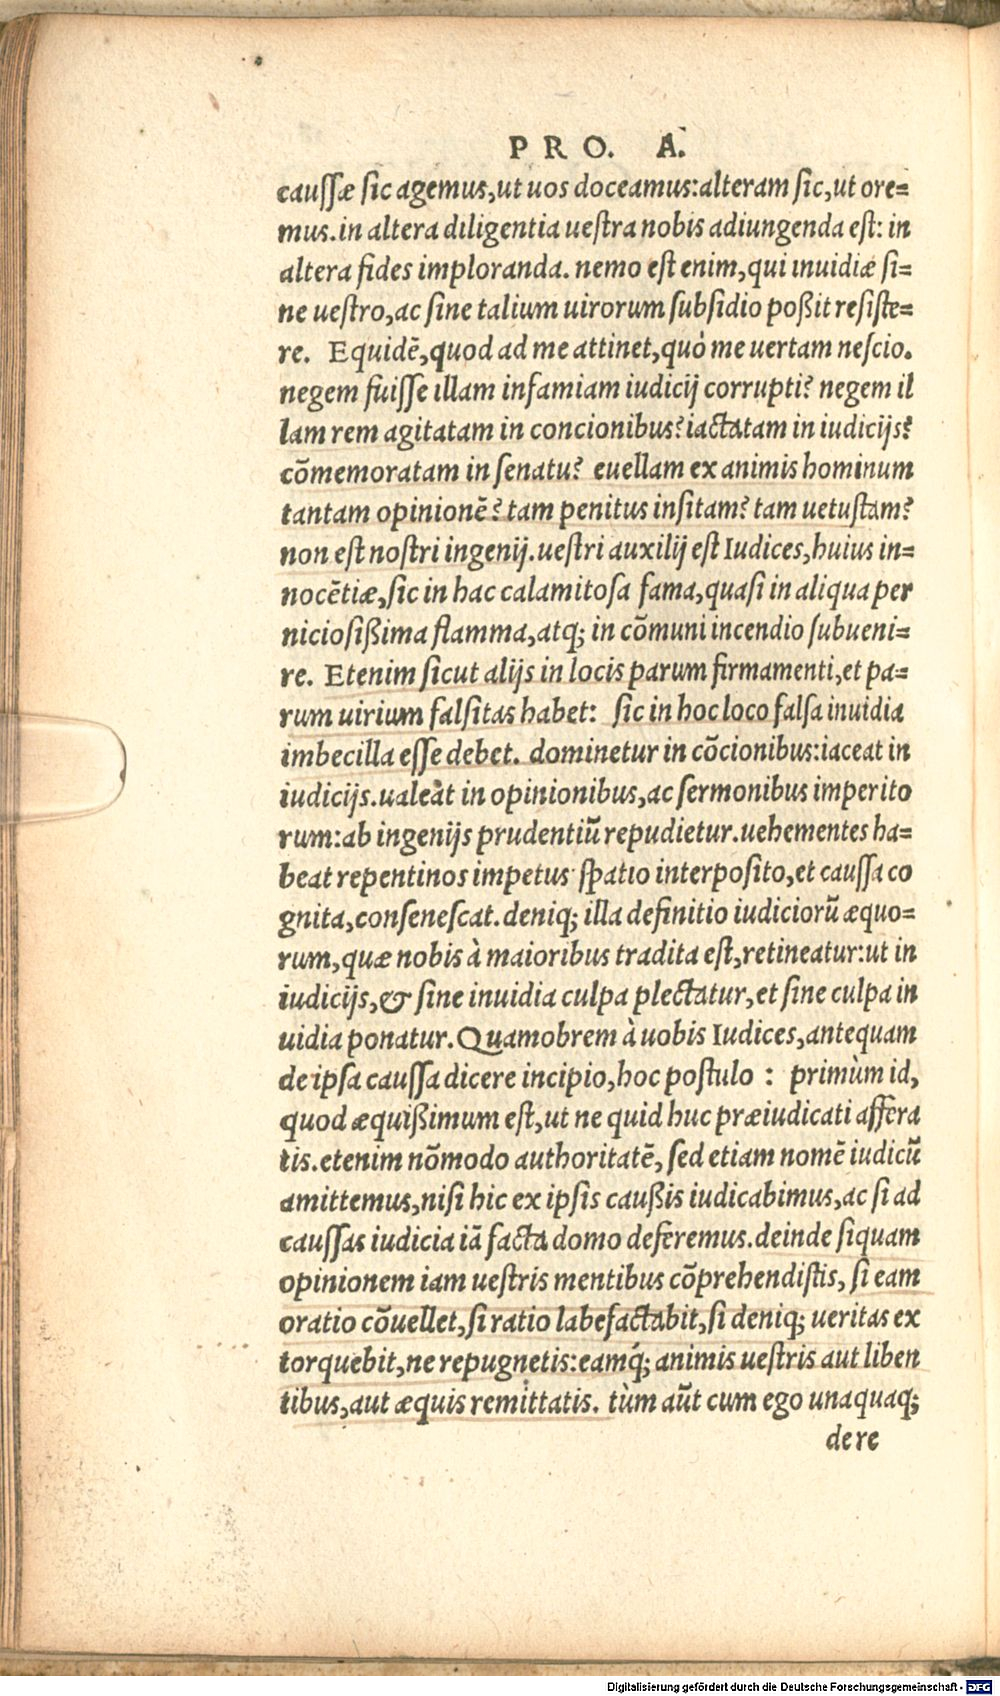 PRO. A.
caussæ sic agemus,ut uos doceamus:alteram sic,ut ore=
mus.in altera diligentia uestra nobis adiungenda est: in
altera fides imploranda. nemo est enim,qui inuidiæ si=
ne uestro,ac sine talium uirorum subsidio poßit resiste=
re. Equidē,quod ad me attinet,quò me uertam nescio.
negem fuisse illam infamiam iudicij corrupti? negem il
lam rem agitatam in concionibus?iactatam in iudicijs?
cōmemoratam in senatu? euellam ex animis hominum
tantam opinionē? tam penitus insitam? tam uetustam?
non est nostri ingenij.uestri auxilij est Iudices,huius in=
nocētiæ,sic in hac calamitosa fama,quasi in aliqua per
niciosißima flamma,atq; in cōmuni incendio subueni=
re. Etenim sicut alijs in locis parum firmamenti,et pa=
rum uirium falsitas habet: sic in hoc loco falsa inuidia
imbecilla esse debet. dominetur in cōcionibus:iaceat in
iudicijs.ualeat in opinionibus,ac sermonibus imperito
rum:ab ingenijs prudentiū repudietur.uehementes ha=
beat repentinos impetus spatio interposito,et caussa co
gnita,consenescat.deniq; illa definitio iudiciorū æquo=
rum,quæ nobis à maioribus tradita est,retineatur:ut in
iudicijs,& sine inuidia culpa plectatur,et sine culpa in
uidia ponatur.Quamobrem à uobis Iudices,antequam
de ipsa caussa dicere incipio,hoc postulo : primùm id,
quod æquißimum est,ut ne quid huc præiudicati affera
tis.etenim nōmodo authoritatē, sed etiam nomē iudicū
amittemus,nisi hic ex ipsis caußis iudicabimus,ac si ad
caussas iudicia iā facta domo deferemus.deinde siquam
opinionem iam uestris mentibus cōprehendistis, si eam
oratio cōuellet,si ratio labefactabit,si deniq; ueritas ex
torquebit,ne repugnetis:eamq́; animis uestris aut liben
tibus,aut æquis remittatis. tùm aūt cum ego unaquaq;
de re
Digitalisierung gefördert durch die Deutsche Forschungsgemeinschaft - DFG